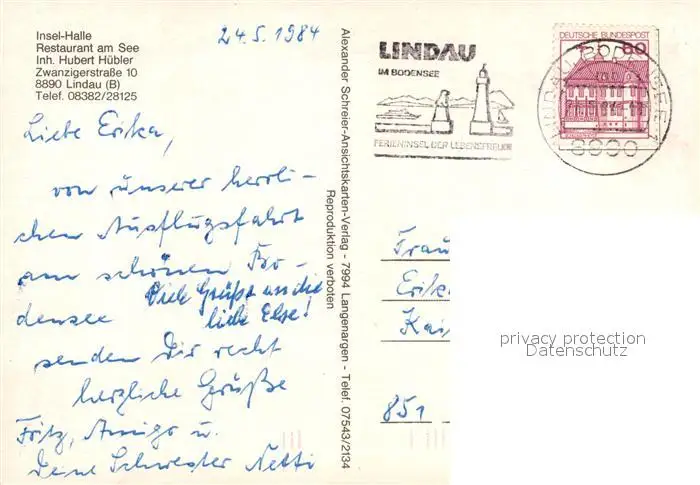 Insel-Halle
Restaurant am See
Inh. Hubert Hübler
Zwanzigerstraße 10
8890 Lindau (B)
Telef. 08382/28125
24.5.1984
Liebe Erika,
von unserer herrli-
chen Ausflugsfahrt
am schönen Bo-
densee
Viele Grüße an die
liebe Else!
senden Dir recht
herzliche Grüße
Fritz, Amigo u.
Deine Schwester Netti
Alexander Schreier-Ansichtskarten-Verlag - 7994 Langenargen - Telef. 07543/2134
Reproduktion verboten
LINDAU
IM BODENSEE
FERIENINSEL DER LEBENSFREUDE
DEUTSCHE BUNDESPOST
80
LINDAU
8990
Frau
Erika
Kai
851
privacy protection
Datenschutz